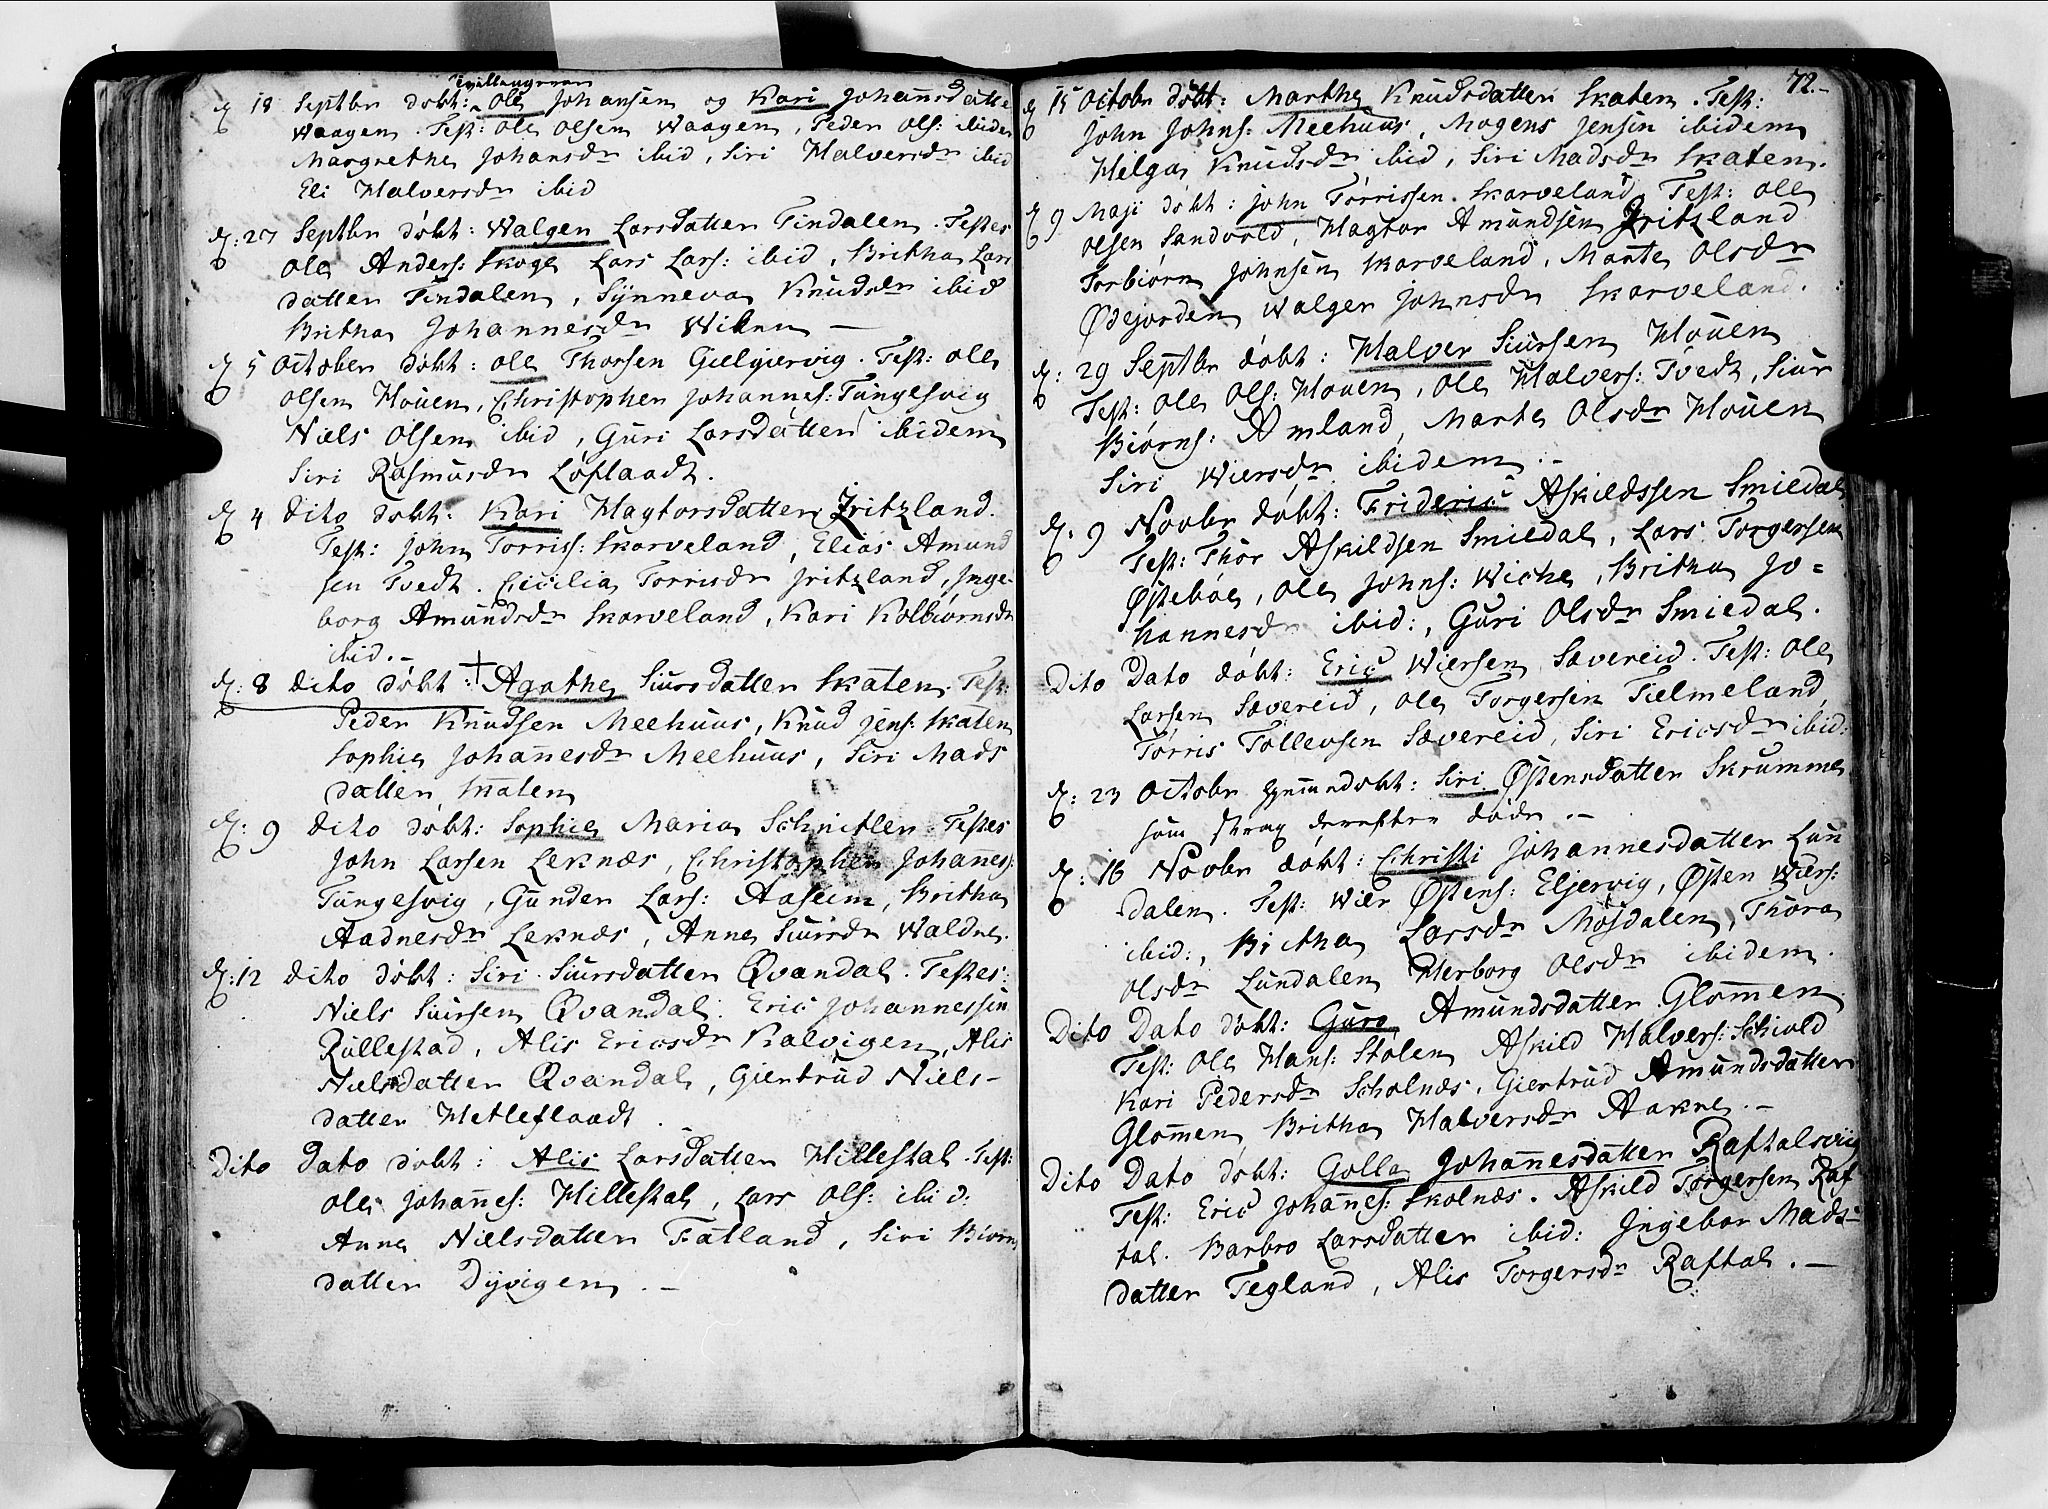 Tvillingerne
d. 18 Septbr døbt: Ole Johansen og Kari Johansdatter
Waagen. Test: Ole Olsen Waagen, Peder Ols: ibidem
Margrethe Johansdr ibid, Siri Halversdr ibid
Eli Halversdr ibid
d. 27 Septbr døbt: Walger Larsdatter Tindalen. Testes
Ole Anders: Skoge Lars Lars: ibid, Britha Lars
datter Tindalen, Synneva Knudsdr ibid
Britha Johannesdr
d. 5 October døbt: Ole Thorsen Gielgiervig. Test: Ole
Olsen Houen, Christopher Johannes: Tungesvig
Niels Olsen ibid, Guri Larsdatter ibidem
Siri Rasmusdr Løflaadt.
d. 4 Dito døbt: Kari Hagtorsdatter Fritzland.
Test: John Torriss: Skarveland, Elias Amund
sen Tvedt. Cicilia Torrisdr Fritzland, Inge-
borg Amundsdr Skarveland, Kari Kolbiørnsdr
ibid.-
d: 8 Dito døbt: + Agathe Siursdatter Skaten. Test:
Peder Knudsen Meehuus, Knud Jens: Skaten
Sophie Johannesdr Meehuus, Siri Mads
datter Skaten
d: 9 Dito døbt: Sophie Maria Schnitler. Testes
John Larsen Leknæs, Christopher Johannes:
Tungesvig, Gunder Lars: Aaseim, Britha
Aadnesdr Leknæs, Anne Siursdr Waldne.
d: 12 Dito døbt: Siri Siursdatter Qvandal. Testes:
Niels Siursen Qvandal. Eric Johannessen
Rullestad, Alis Ericsdr Kalvigen, Alis
Nielsdatter Qvandal, Giertrud Niels-
datter Metleflaadt.
Dito Dato døbt: Alis Larsdatter Hillestal. Test:
Ole Johannes: Hillestal, Lars Ols: ibid:
Anne Nielsdatter Fatland, Siri Biørns
datter Dyvigen. -
72.-
d 15 Octobr døbt: Marthe Knudsdatter Skaten. Test:
John Johns: Meehuus, Mogens Jensen ibidem
Helga Knudsdr ibid, Siri Madsdr Skaten.
d 9 Maji døbt: John Tørrissen Skarveland. Test: Ole
Olsen Sandvold, Hagtor Amundsen Fritzland
Torbiørn Johnsen Skarveland, Marte Olsdr
Ødejorden Walger Johnsdr Skarveland.
d: 29 Septbr døbt: Halver Siursen Houen
Test: Ole Ols: Houen, Ole Halvers: Tvedt, Siur
Biørns: Amland, Marte Olsdr Houen
Siri Wiersdr ibidem.-
d: 9 Novbr døbt: Frideric Askildssen Smiedal
Test: Thor Askildsen Smiedal, Lars Torgersen
Østebøe, Ole Johns: Wiche, Britha Jo=
hannesdr ibid:, Guri Olsdr Smiedal.
Dito Dato døbt: Eric Wiersen Sævereid. Test: Ole
Larsen Sævereid, Ole Torgersen Tielmeland,
Tørris Tollevsen Sævereid, Siri Ericsdr ibid:
d: 23 Octobr hjemmedøbt: Siri Østensdatter Skrumme
som strax derefter døde.-
d: 16 Novbr døbt: Christi Johannesdatter Lun
dalen. Test: Wier Østens: Eljervig, Østen Wiers:
ibid:, Britha Larsdr Mosdalen, Thora
Olsdr Lundalen Herborg Olsdr ibidem.
Dito Dato døbt: Guro Amundsdatter Glommen
Test: Ole Hans: Stølen Askild Halvers: Schiold
Kari Pedersdr Scholnæs, Giertrud Amundsdatter
Glommen, Britha Halversdr Aakre.-
Dito Dato døbt: Golla Johannesdatter Raftalsviig
Test: Eric Johannes: Skolnæs. Askild Torgersen Raf
tal. Barbro Larsdatter ibid: Ingebor Mads-
datter Tegland, Alis Torgersdr Raftal.-